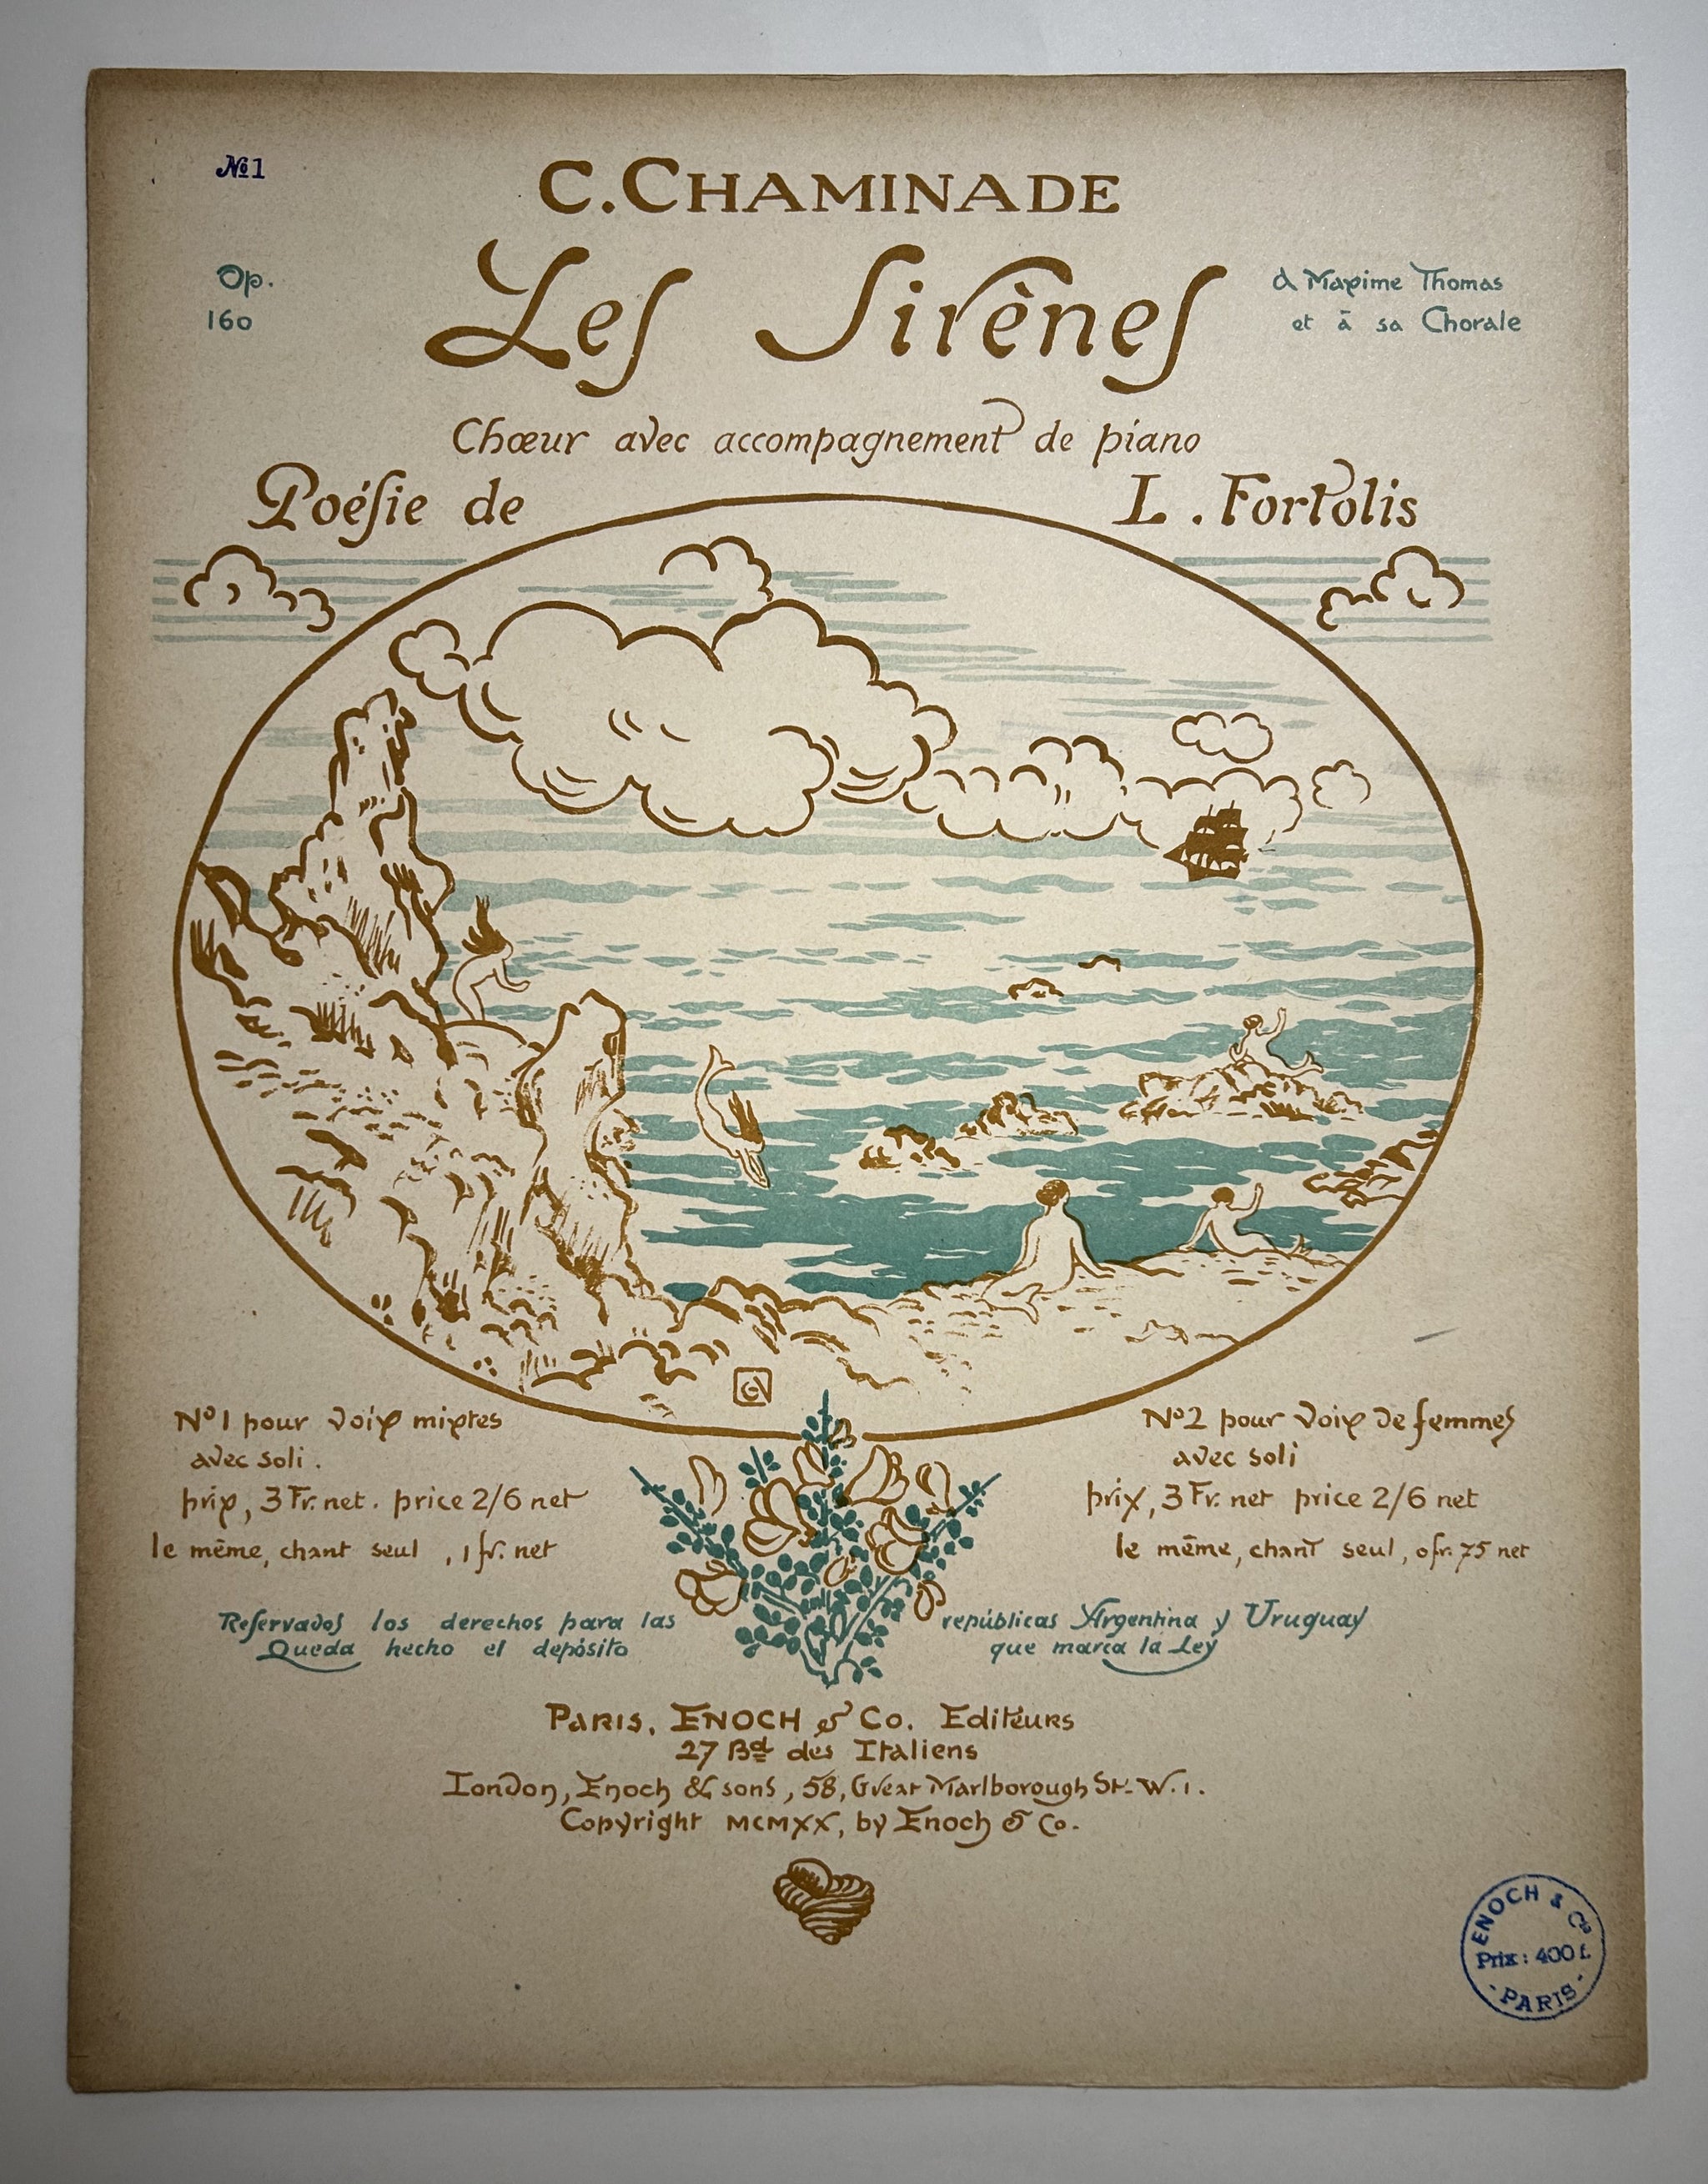 №1
C. CHAMINADE
Op.
160
Les Sirènes
à Maxime Thomas
et à sa Chorale
Chœur avec accompagnement de piano
Poésie de L. Fortolis
GV
Nº1 pour voix mixtes
avec soli.
prix, 3 Fr. net. price 2/6 net
le même, chant seul, 1 fr. net
Nº2 pour voix de femmes
avec soli
prix, 3 Fr. net price 2/6 net
le même, chant seul, 0fr. 75 net
Reservados los derechos para las repúblicas Argentina y Uruguay
Queda hecho el depósito que marca la Ley
PARIS, ENOCH & Co. Editeurs
27 Bd des Italiens
London, Enoch & sons, 58, Great Marlborough St. W.1.
Copyright MCMXX, by Enoch & Co.
ENOCH & Cie
Prix : 400 f.
- PARIS -